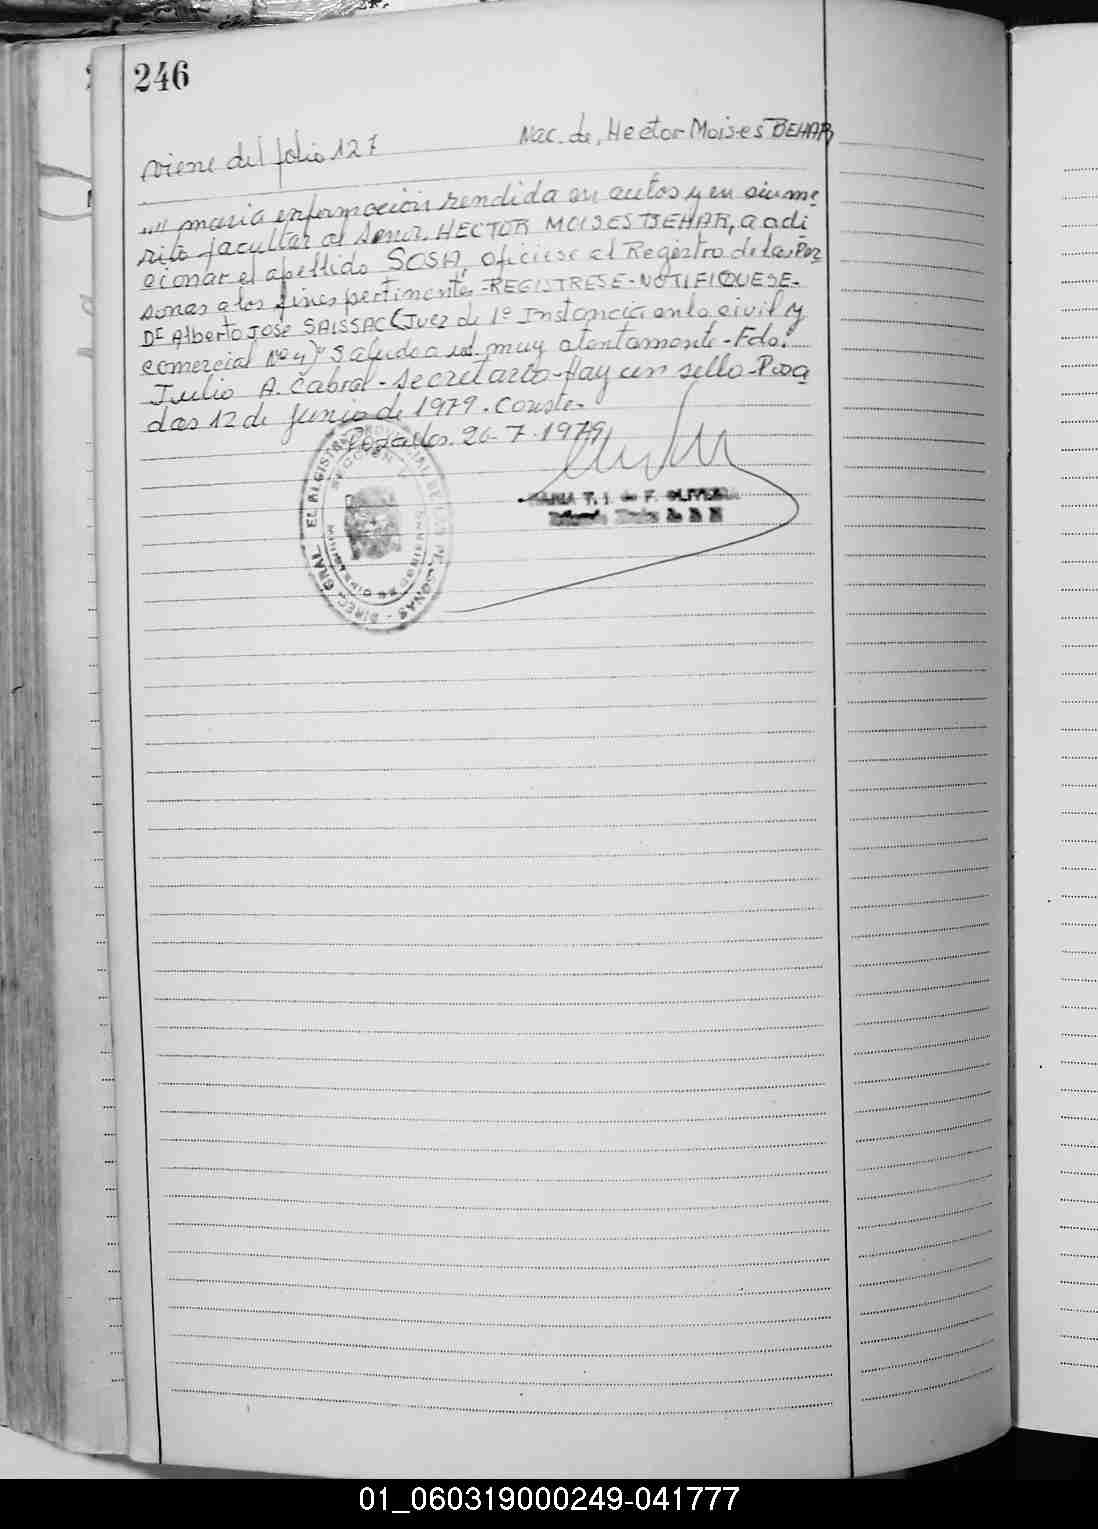 246
Nac. de, Hector Moises BEHAR
viene del folio 127
"" maria informacion rendida en autos y en su me
rito facultar al Señor. HECTOR MOISES BEHAR, a adi
cionar el apellido SOSA, oficiese al Registro de las Per
sonas a los fines pertinentes-REGISTRESE-NOTIFIQUESE-
Dr Alberto José SAISSAC (Juez de 1º Instancia en lo civil y
comercial Nº 4) Saludo a ud. muy atentamente-Fdo.
Julio A. Cabral-Secretario-Hay un sello-Posa
das 12 de Junio de 1979. Conste.
Posadas. 26-7-1979
MARIA T. I. de F. OLIVERA
01_060319000249-041777